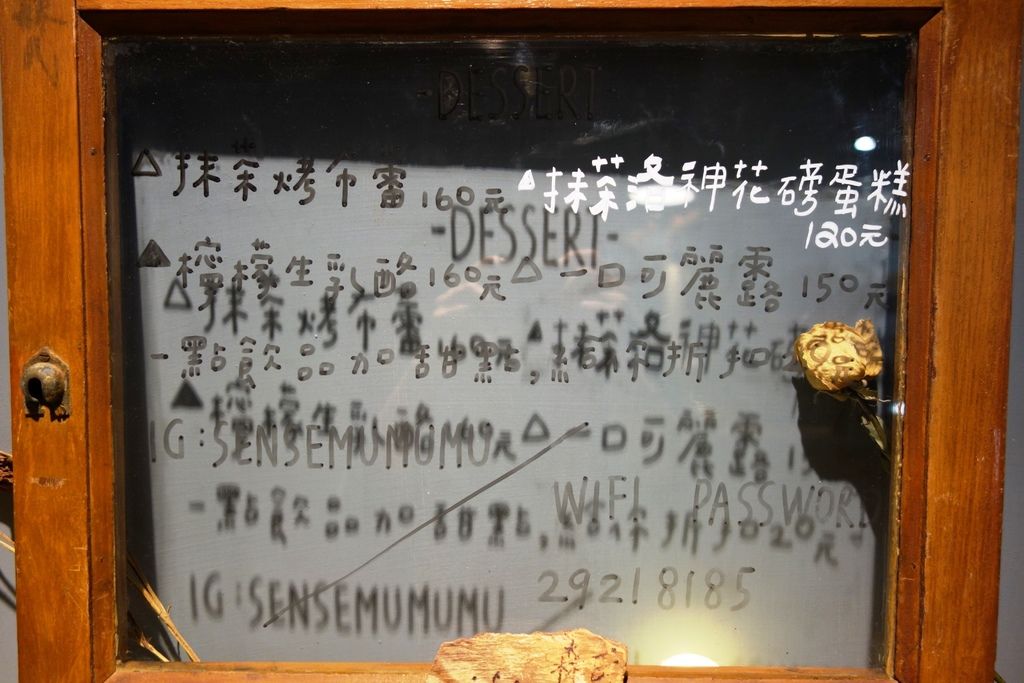 -DESSERT-
△抹茶烤布蕾 160元
△抹茶洛神花磅蛋糕
120元
▲檸檬生乳酪160元
△一口可麗露 150元
-點飲品加甜點,結帳折扣20元
IG:SENSEMUMUMU
WIFI PASSWORD
29218185